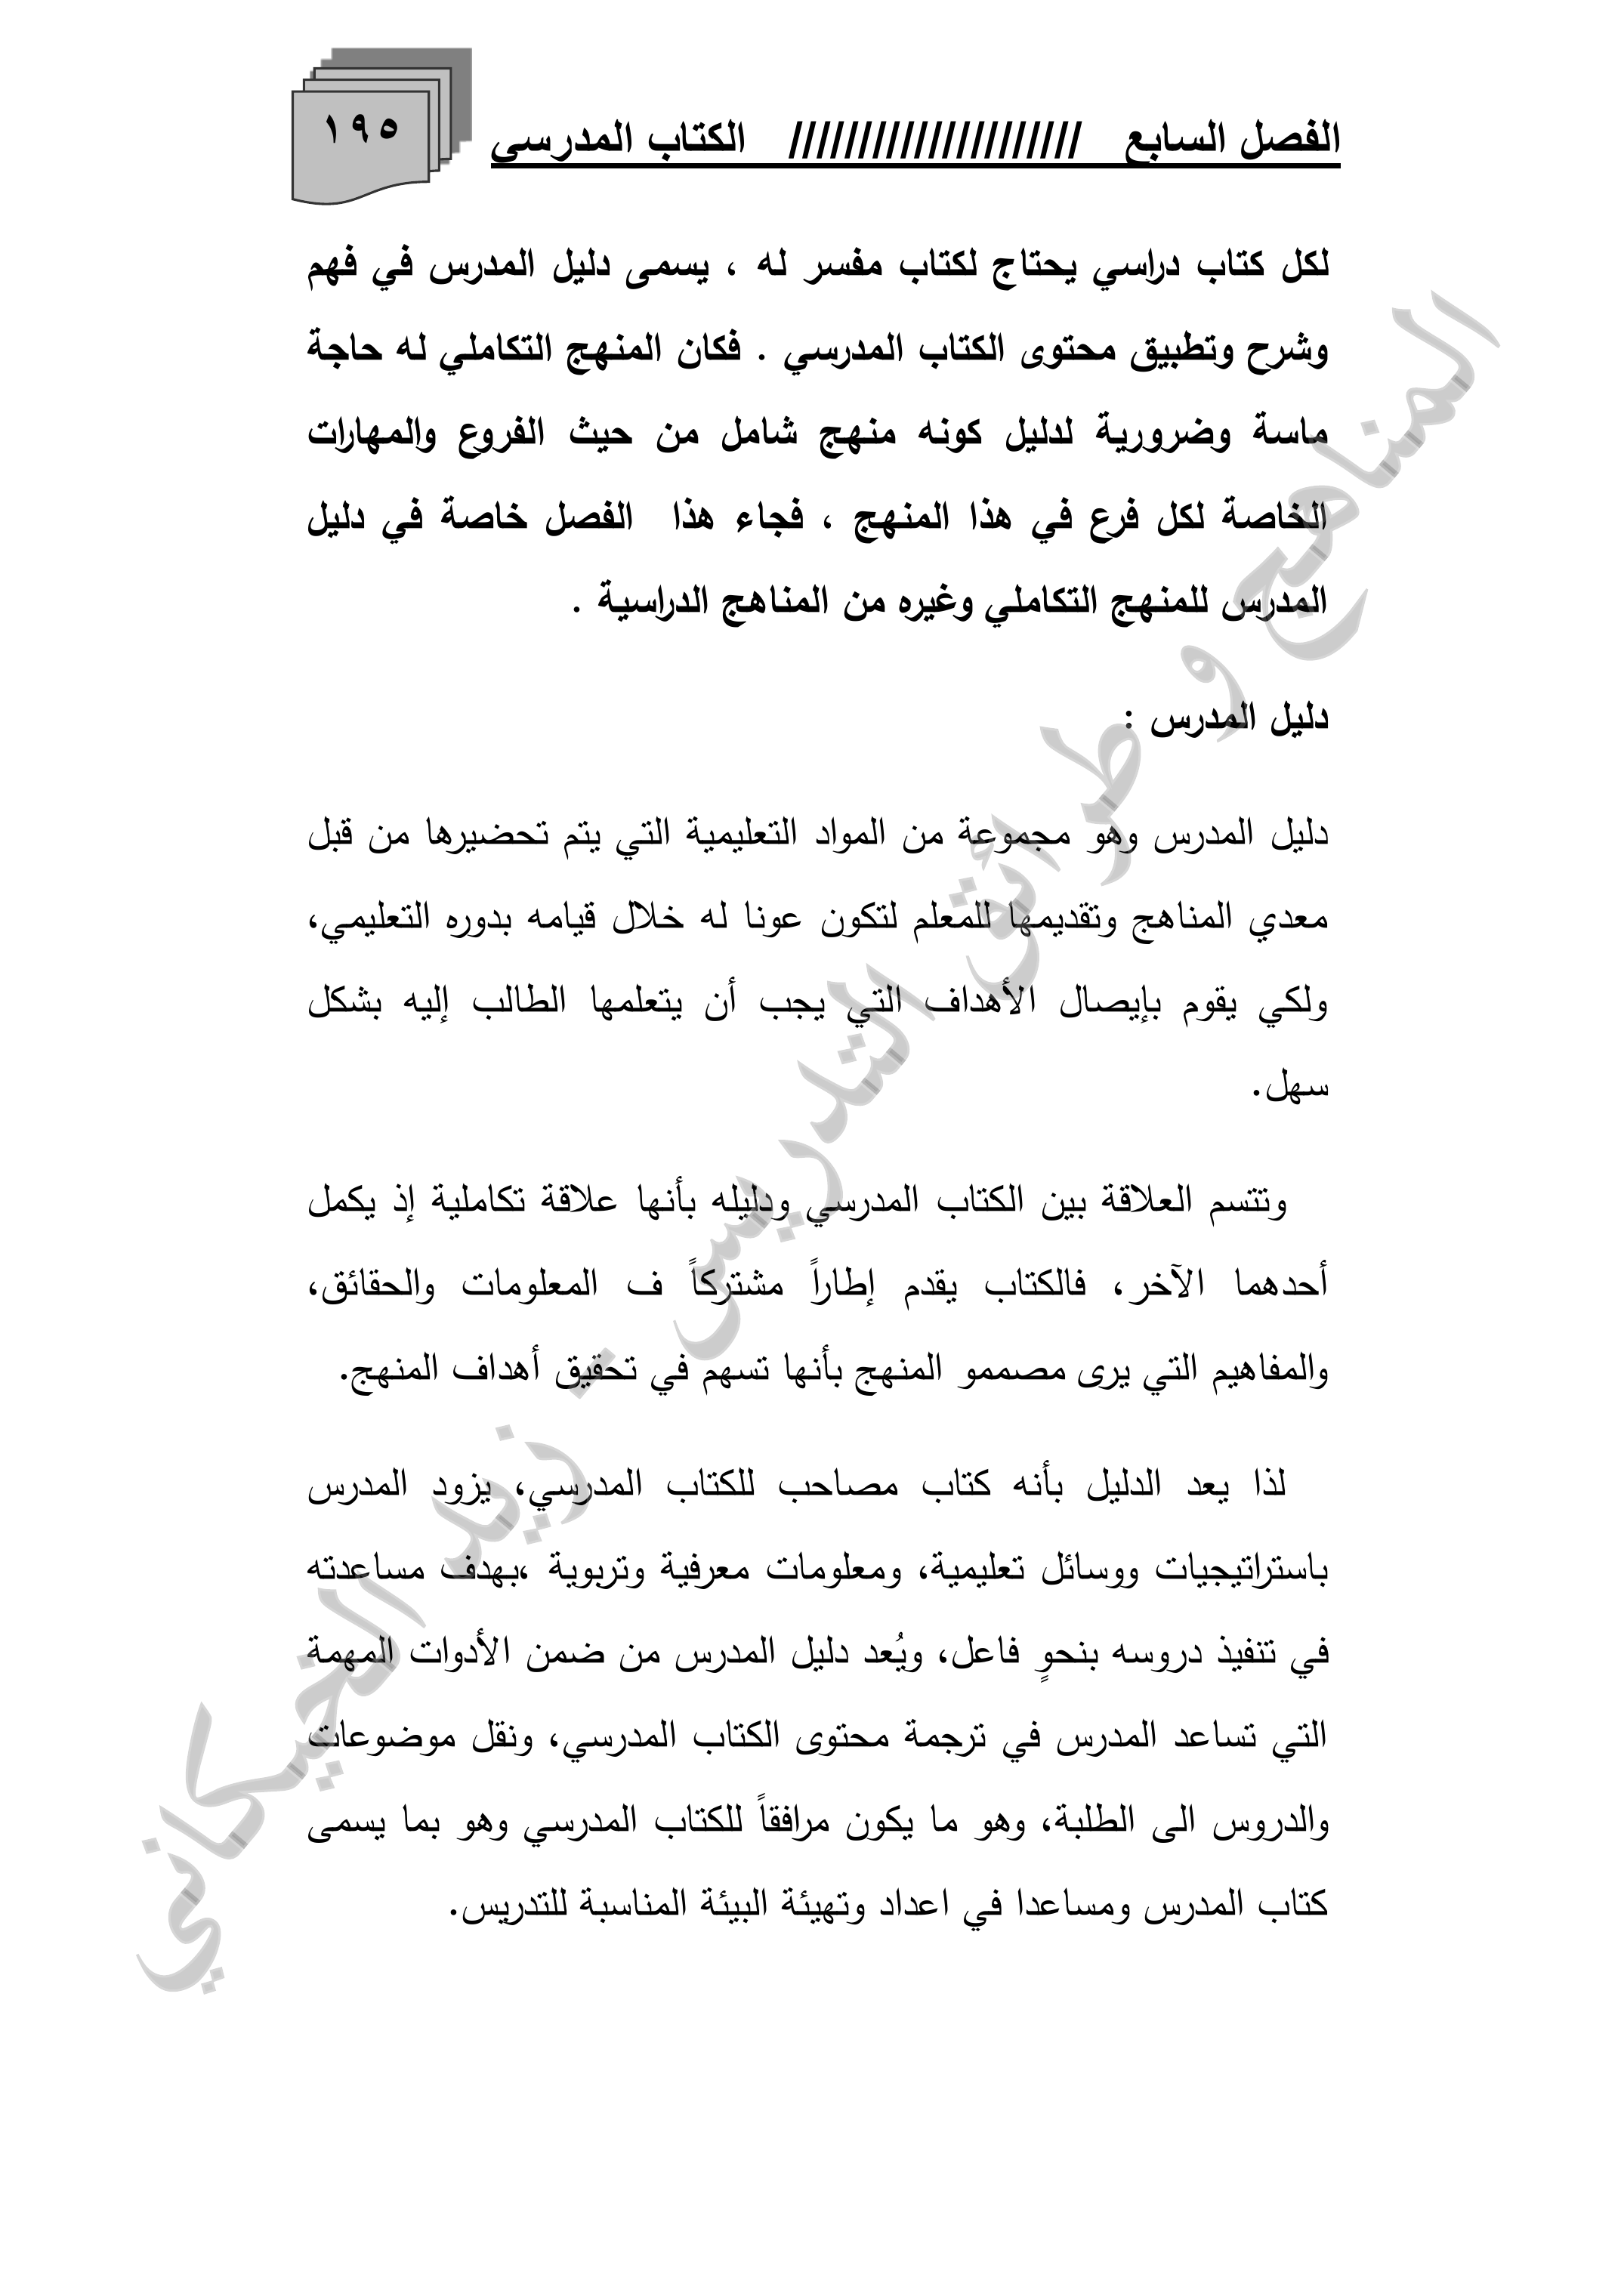 الفصل السابع ///////////////////// الكتاب المدرسي
١٩٥
لكل كتاب دراسي يحتاج لكتاب مفسر له ، يسمى دليل المدرس في فهم
وشرح وتطبيق محتوى الكتاب المدرسي . فكان المنهج التكاملي له حاجة
ماسة وضرورية لدليل كونه منهج شامل من حيث الفروع والمهارات
الخاصة لكل فرع في هذا المنهج ، فجاء هذا الفصل خاصة في دليل
المدرس للمنهج التكاملي وغيره من المناهج الدراسية .
دليل المدرس :
دليل المدرس وهو مجموعة من المواد التعليمية التي يتم تحضيرها من قبل
معدي المناهج وتقديمها للمعلم لتكون عونا له خلال قيامه بدوره التعليمي،
ولكي يقوم بإيصال الأهداف التي يجب أن يتعلمها الطالب إليه بشكل
سهل.
وتتسم العلاقة بين الكتاب المدرسي ودليله بأنها علاقة تكاملية إذ يكمل
أحدهما الآخر، فالكتاب يقدم إطاراً مشتركاً ف المعلومات والحقائق،
والمفاهيم التي يرى مصممو المنهج بأنها تسهم في تحقيق أهداف المنهج.
لذا يعد الدليل بأنه كتاب مصاحب للكتاب المدرسي، يزود المدرس
باستراتيجيات ووسائل تعليمية، ومعلومات معرفية وتربوية ،بهدف مساعدته
في تنفيذ دروسه بنحوٍ فاعل، ويُعد دليل المدرس من ضمن الأدوات المهمة
التي تساعد المدرس في ترجمة محتوى الكتاب المدرسي، ونقل موضوعات
والدروس الى الطلبة، وهو ما يكون مرافقاً للكتاب المدرسي وهو بما يسمى
كتاب المدرس ومساعدا في اعداد وتهيئة البيئة المناسبة للتدريس.
المناهج و طرائق التدريس - زيد الخيكاني